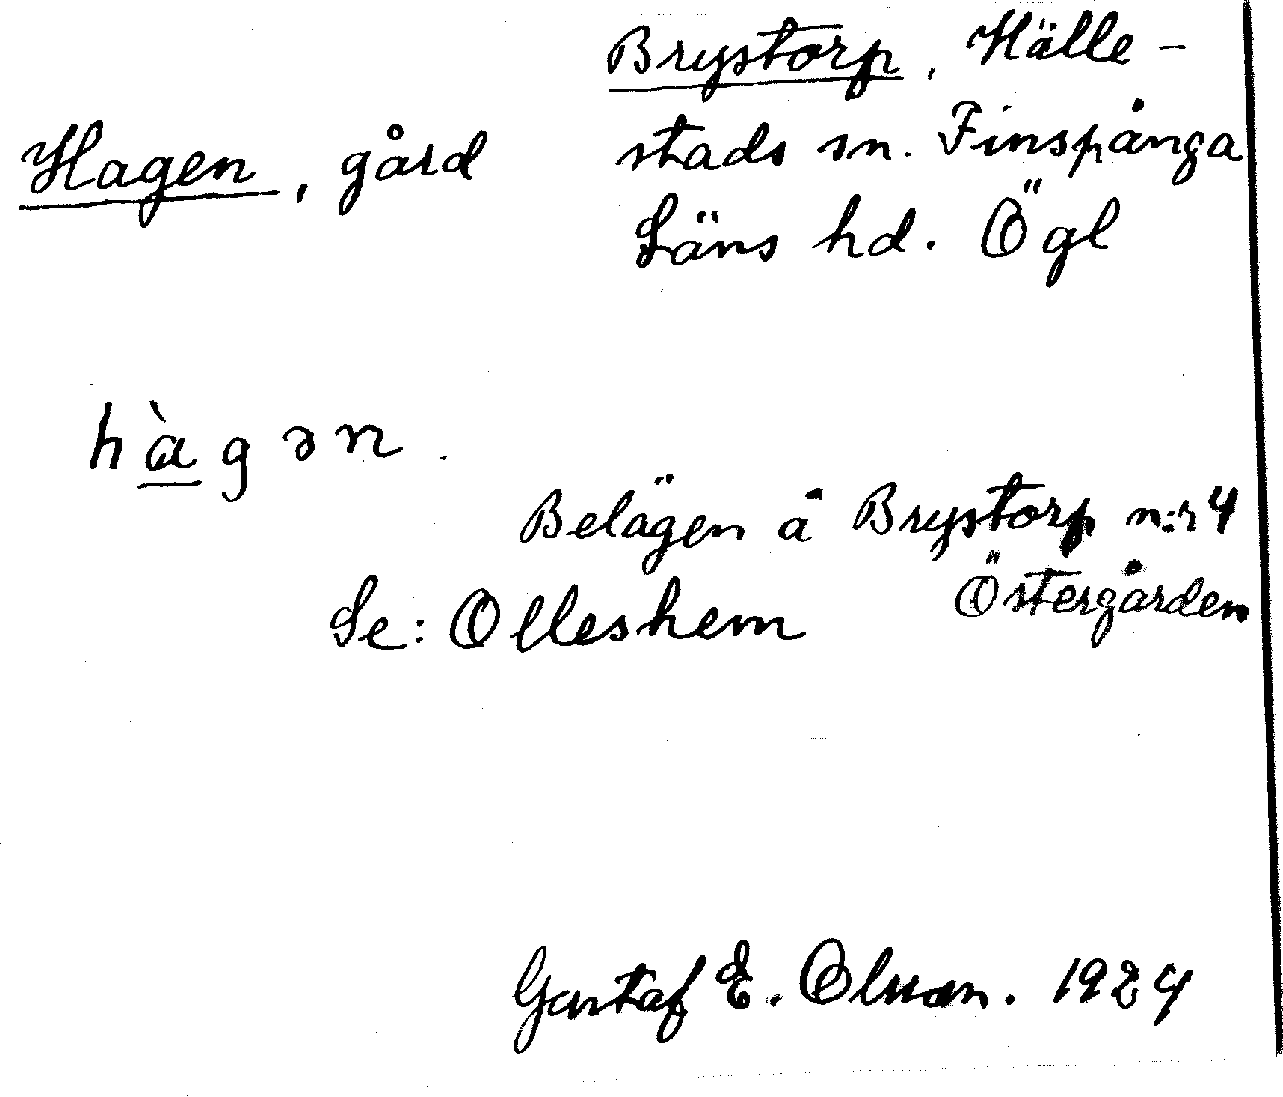 Brystorp, Hälle-
Hagen, gård
stads sn. Finspånga
Läns hd. Ögl
hàgən.
Belägen å Brystorp n:r 4
Östergården
Se: Olleshem
Gustaf E. Olsson. 1924